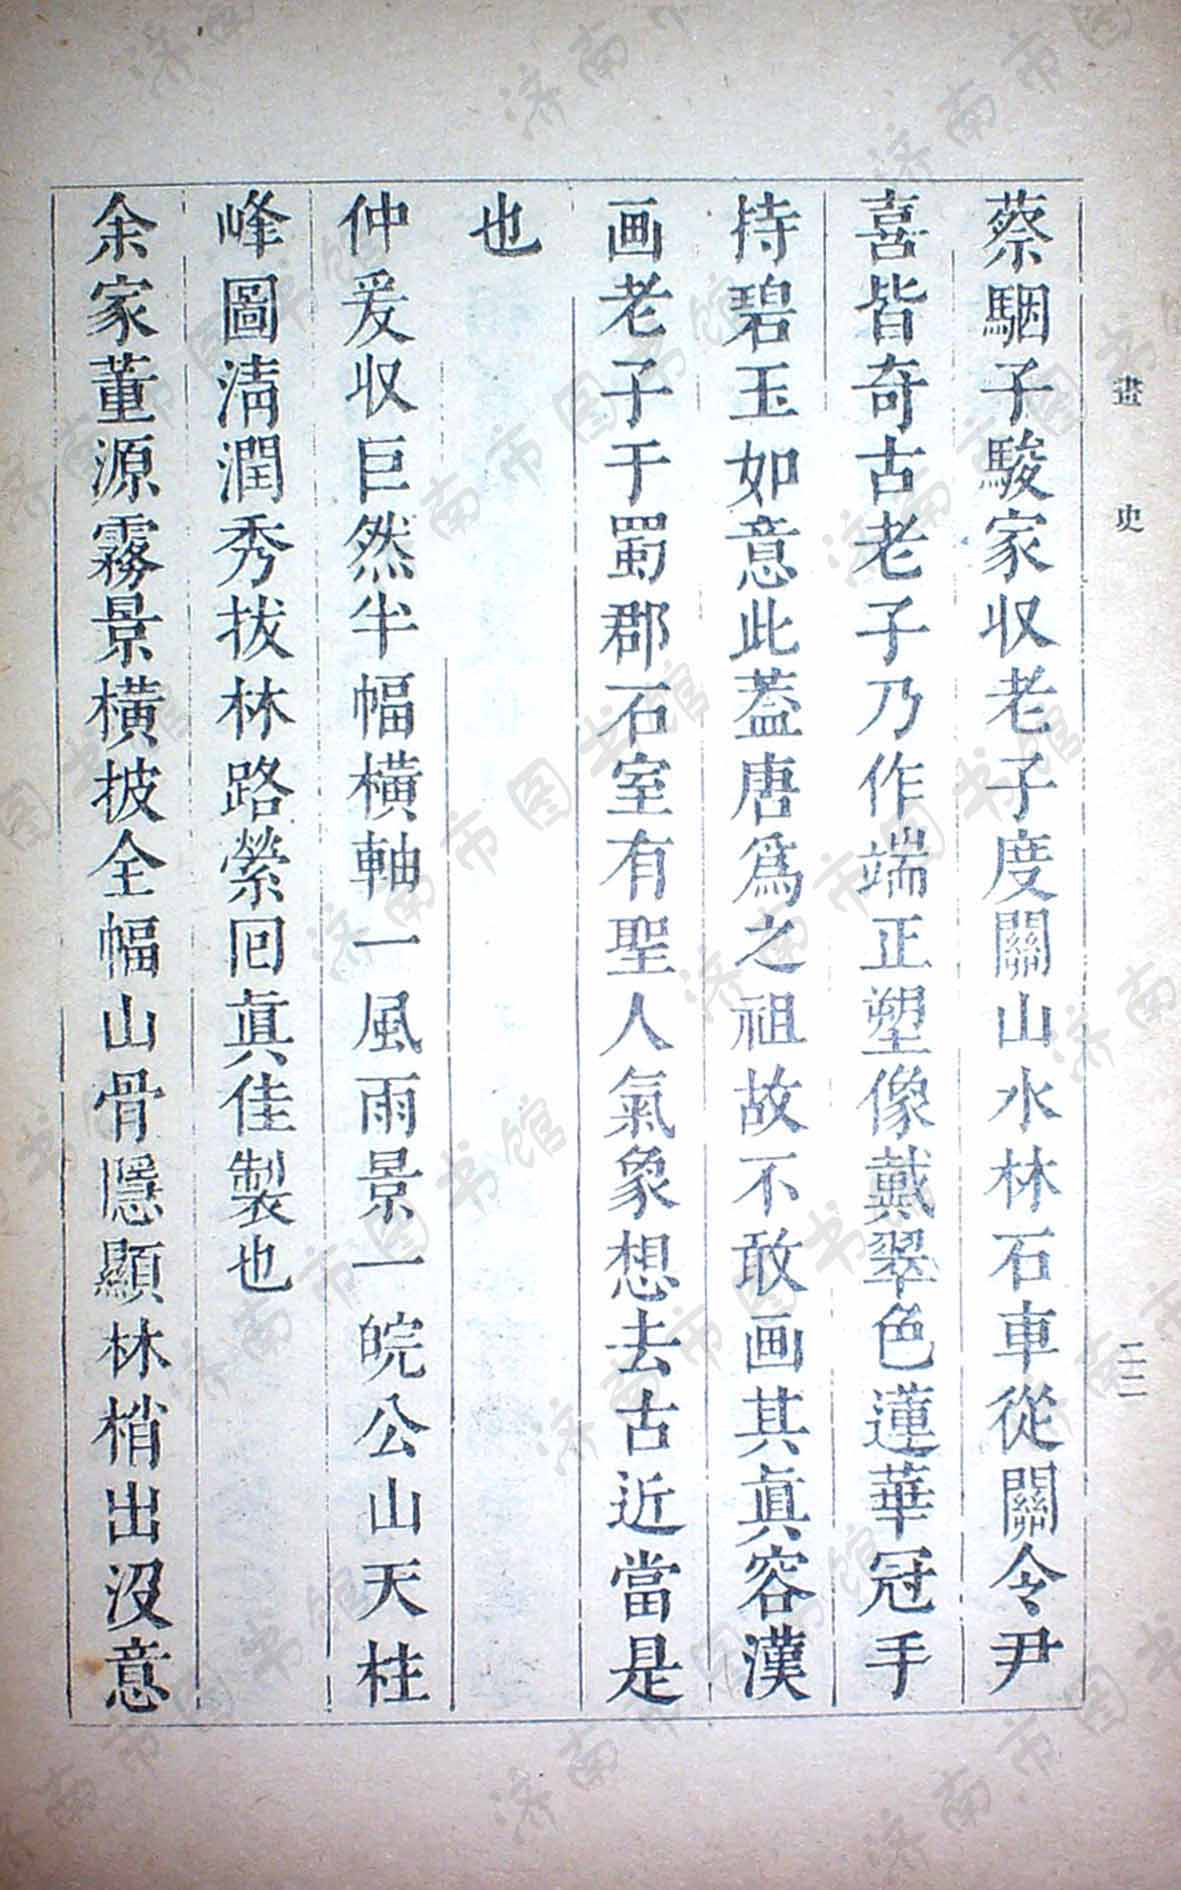 畫史
二二
蔡駰子駿家収老子度關山水林石車從關令尹
喜皆奇古老子乃作端正塑像戴翠色蓮華冠手
持碧玉如意此葢唐爲之祖故不敢画其眞容漢
画老子于蜀郡石室有聖人氣象想去古近當是
也
仲爰収巨然半幅橫軸一風雨景一皖公山天柱
峰圖淸潤秀拔林路縈回眞佳製也
余家董源霧景橫披全幅山骨隱顯林梢出沒意
济南市图书馆